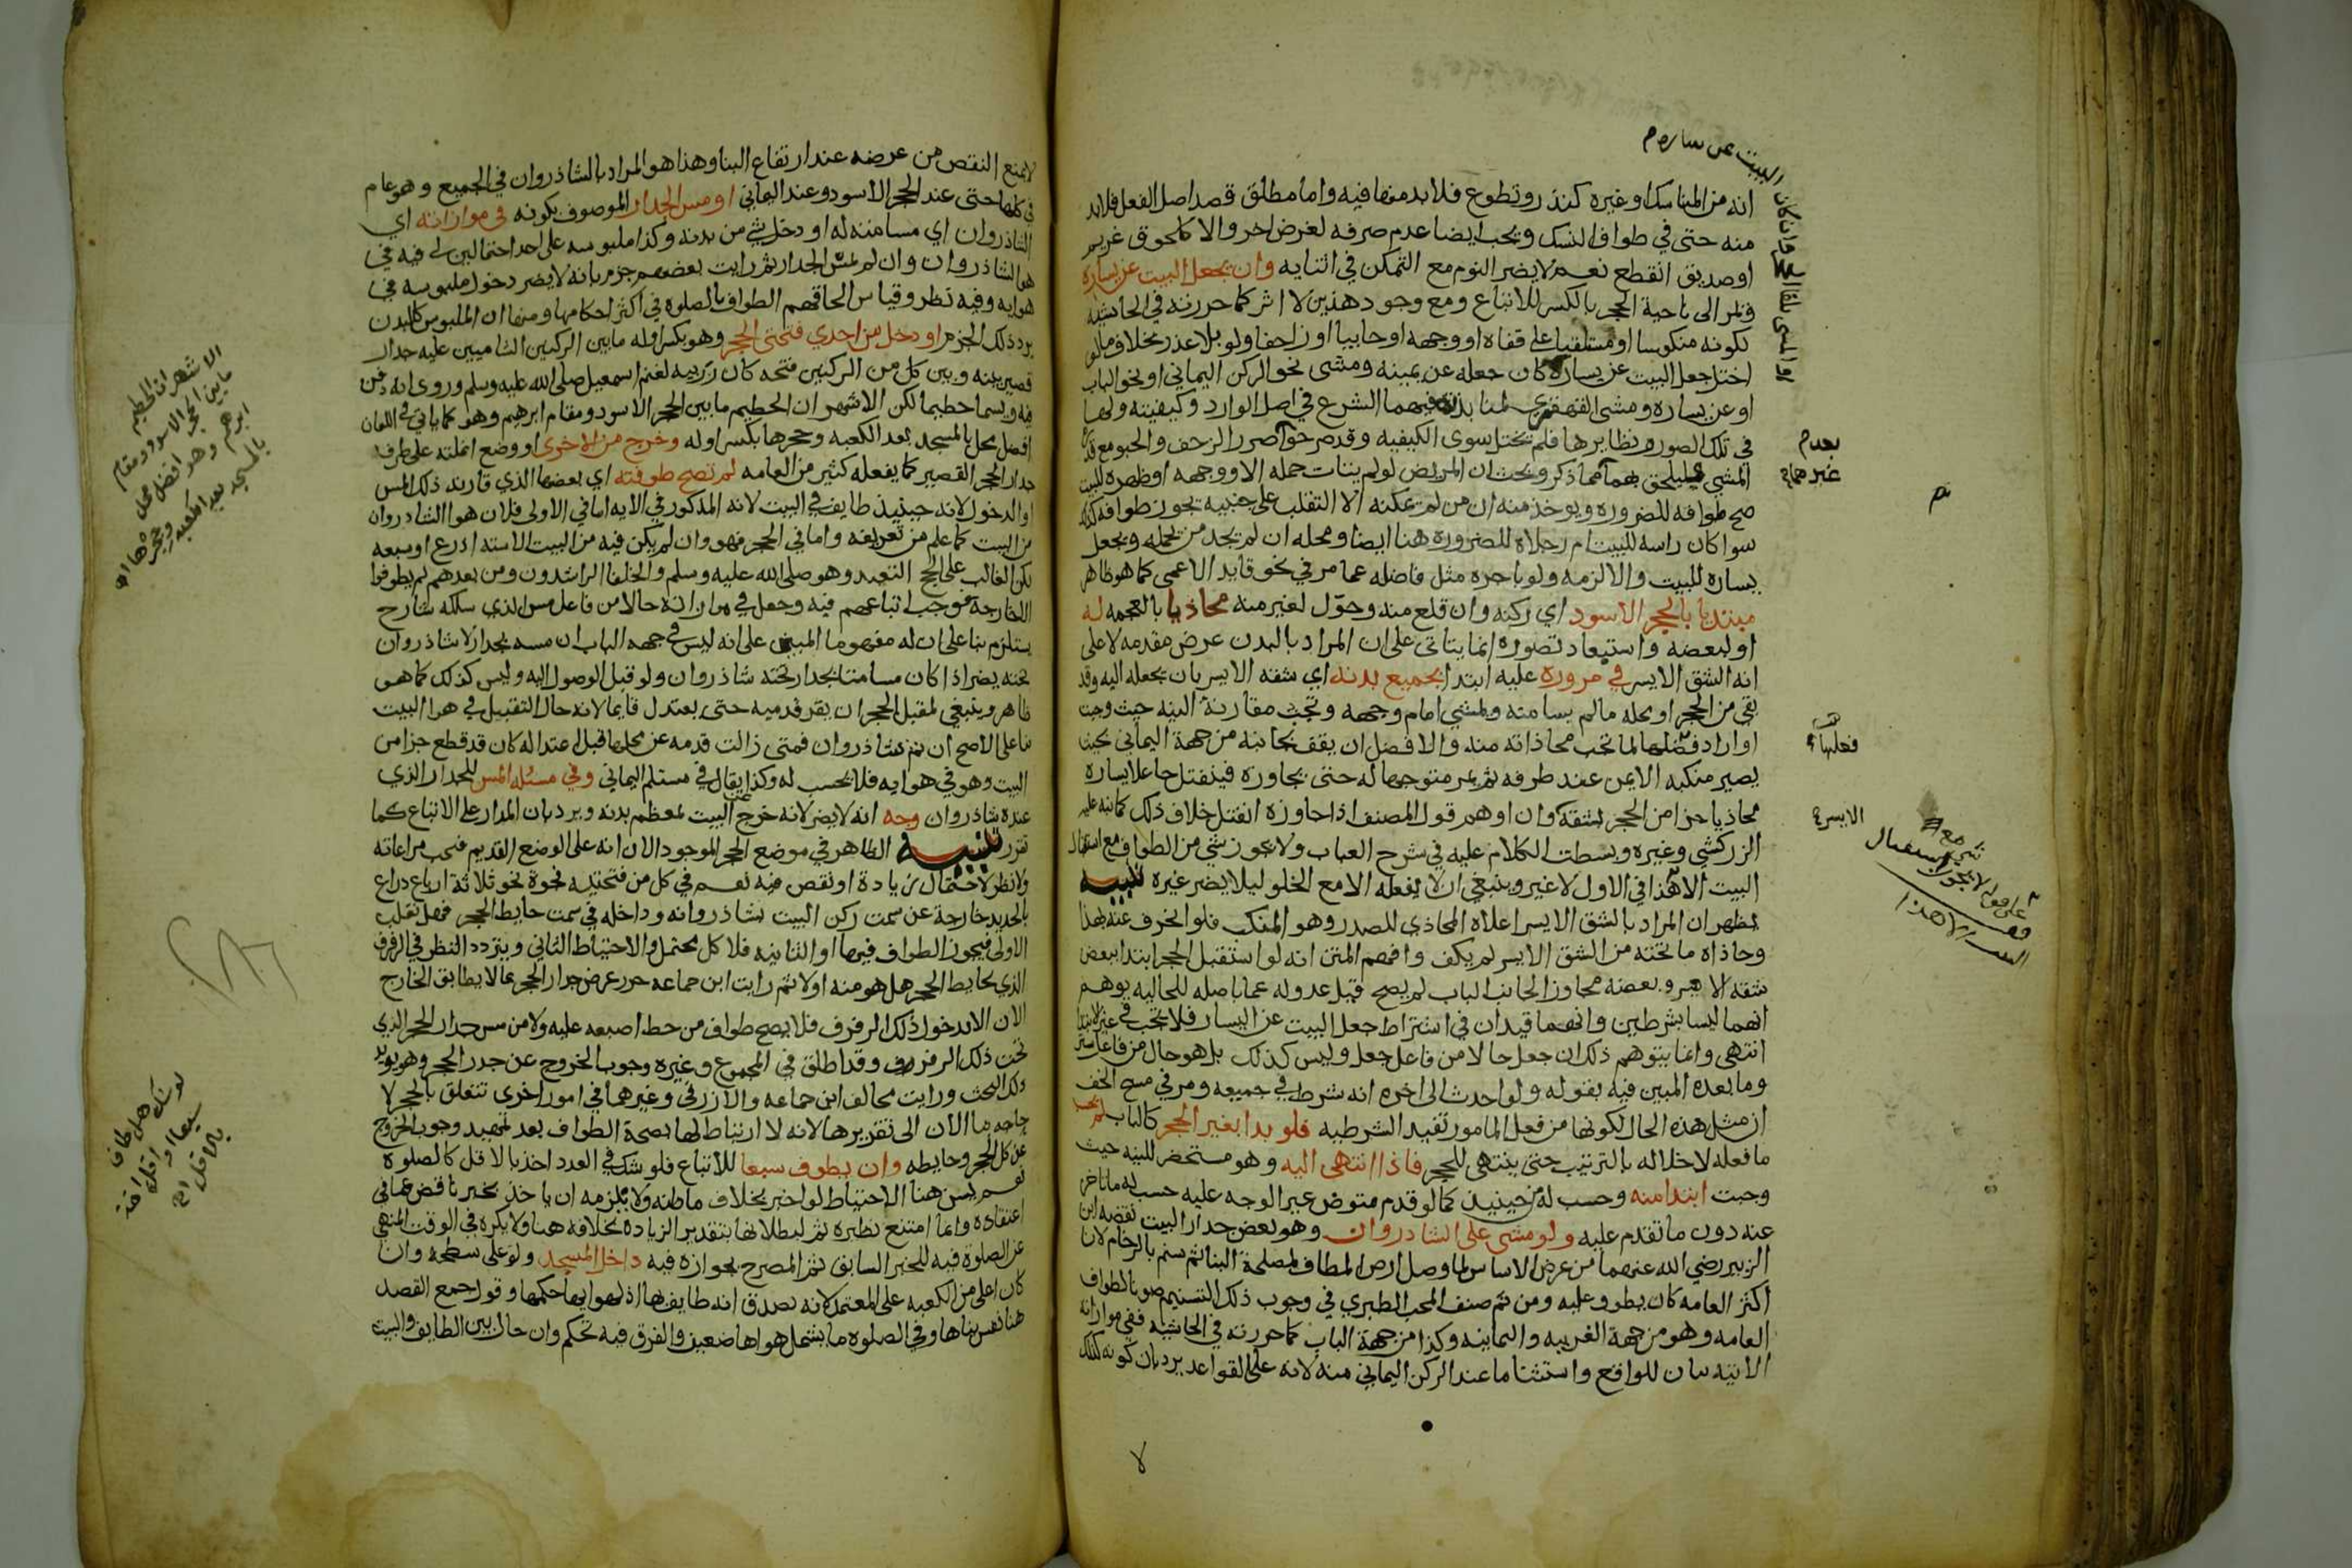 انه من المناسك او غيره كنذر وتطوع فلا بد منها فيه واما مطلق قصد اصل الفعل فلا بد
منه حتى في طواف النسك ويجب ايضا عدم صرفه لغرض اخر والا كلحوق غريم
او صديق انقطع نعم لا يضر النوم مع التمكن في اثنايه وان يجعل البيت عن يساره
ويمر الى ناحية الحجر بالكسر للاتباع ومع وجود هذين لا اثر كما حررته في الحاشية
لكونه منكوسا او مستلقيا على قفاه او وجهه او حابيا او زاحفا ولو بلا عذر بخلاف ما لو
اختل جعل البيت عن يساره كان جعله عن يمينه ومشى نحو الركن اليماني او نحو الباب
او عن يساره ومشى القهقرى لمنابذته فيهما الشرع في اصل الوارد وكيفيته ولهما
في تلك الصور ونظايرها فلم يختل سوى الكيفيه وقد صرحوا بصور الزحف والحبو مع قدرة
المشي فيلحق بهما مما ذكر وبحث ان المريض لو لم يتات حمله الا ووجهه او ظهره للبيت
صح طوافه للضروره ويوخذ منه ان من لم يمكنه الا التقلب على جنبيه يجوز طوافه كذلك
سوا كان راسه للبيت ام رجلاه للضرورة هنا ايضا ومحله ان لم يجد من يحمله ويجعل
يساره للبيت والا لزمه ولو باجره مثل فاضله عما مر في نحو قايد الاعمى كما هو ظاهر
مبتديا بالحجر الاسود اي ركنه وان قلع منه وحول لغيره منه محاذيا بالمعجمه له
او لبعضه واستبعاد تصوره انما يتاتى على ان المراد بالبدن عرض مقدمه لا على
انه الشق الايسر في مروره عليه ابتدا بجميع بدنه اي شقه الايسر بان يجعله اليه وقد
بقي من الحجر او محله ما لم يسامته ولمشي امام وجهه وتجب مقارنة النيه حيث وجبت
او اراد فضلها لما تجب محاذاته منه والافضل ان يقف بجانبه من جهة اليماني بحيث
يصير منكبه الايمن عند طرفه ثم يمر متوجها له حتى يجاوزه فينفتل جاعلا يساره
محاذيا جزا من الحجر بشقه وان اوهم قول المصنف اذا جاوزه انفتل خلاف ذلك كما نبه عليه
الزركشي وغيره وبسطت الكلام عليه في شرح العباب ولا يجوز شي من الطواف مع استقبال
البيت الا هذا في الاول لا غير وينبغي ان لا يفعله الا مع الخلو ليلا يضر غيره تنبيه
يظهر ان المراد بالشق الايسر اعلاه المحاذي للصدر وهو المنكب فلو انحرف عنه بهذا
وحاذاه ما تحته من الشق الايسر لم يكف وافهم المتن انه لو استقبل الحجر ابتدا ببعض
شقه الايسر وبعضه مجاوز الجانب الباب لم يصح قيل عدوله عما باصله للحاليه يوهم
انهما ليسا بشرطين وانهما قيدان في اشتراط جعل البيت عن اليسار فلا يجب في غير الابتدا
انتهى وانما يتوهم ذلك ان جعل حالا من فاعل جعل وليس كذلك بل هو حال من فاعل ستر
وما بعده المبين فيه بقوله ولو احدث الى اخره انه شرط في جميعه ومر في مسح الخف
ان مثل هذه الحال لكونها من فعل المامور تفيد الشرطيه فلو بدا بغير الحجر كالباب لم يحسب
ما فعله لاخلاله بالترتيب حتى ينتهي للحجر فاذا انتهى اليه وهو مستحضر للنيه حيث
وجبت ابتدا منه وحسب له من حينيذ كما لو قدم متوض غير الوجه عليه حسب له ما تاخر
عنه دون ما تقدم عليه ولو مشى على الشاذروان وهو بعض جدار البيت نقصه ابن
الزبير رضي الله عنهما من عرض الاساس لما وصل ارض المطاف لمصلحة البنا ثم سنم بالرخام لان
اكثر العامه كان يطوف عليه ومن ثم صنف المحب الطبري في وجوب ذلك التسنيم صونا لطواف
العامه وهو من جهة الغربيه واليمانيه وكذا من جهة الباب كما حررته في الحاشية ففي موازاته
الاتيه بيان للواقع واستثنا ما عند الركن اليماني منه لانه على القواعد يرد بان كونه كذلك
بعدم
غيرهما
فعليها
الايسر
لا
لا يمنع النقص من عرضه عند ارتفاع البنا وهذا هو المراد بالشاذروان في الجميع وهو عام
في كلها حتى عند الحجر الاسود وعند اليماني او مس الجدار الموصوف بكونه في موازاته اي
الشاذروان اي مسامتته له او دخل شي من بدنه وكذا ملبوسه على احد احتمالين لي فيه في
هوا الشاذروان وان لم يمس الجدار ثم رايت بعضهم جزم بانه لا يضر دخول ملبوسه في
هوايه وفيه نظر وقياس الحاقهم الطواف بالصلوه في اكثر احكامها ومنها ان الملبوس كالبدن
يرد ذلك الجزم او دخل من احدى فتحتي الحجر وهو بكسر اوله ما بين الركنين الشاميين عليه جدار
قصير بينه وبين كل من الركنين فتحه كان زريبه لغنم اسمعيل صلى الله عليه وسلم وروي انه دفن
فيه ويسما حطيما لكن الاشهر ان الحطيم ما بين الحجر الاسود ومقام ابرهيم وهو كما ياتي في اللعان
افضل محل بالمسجد بعد الكعبه وحجرها بكسر اوله وخرج من الاخرى او وضع انملته على طرف
جدار الحجر القصير كما يفعله كثير من العامه لم تصح طوفته اي بعضها الذي قارنه ذلك المس
او الدخول لانه حينيذ طايف في البيت لانه المذكور في الايه اما في الاولى فلان هوا الشاذروان
من البيت كما علم من تعريفه واما في الحجر فهو وان لم يكن فيه من البيت الا سته اذرع او سبعه
لكن الغالب على الحج التعبد وهو صلى الله عليه وسلم والخلفا الراشدون ومن بعدهم لم يطوفوا
الا خارجه فوجب اتباعهم فيه وجعل في موازاته حالا من فاعل مس الذي سلكه شارح
يستلزم بنا على ان له مفهوما المبني على انه ليس في جهه الباب ان مسه بجدار لا شاذروان
تحته يضر اذا كان مسامتا بجدار تحته شاذروان ولو قبل الوصول اليه وليس كذلك كما هو
ظاهر وينبغي لمقبل الحجر ان يقر قدميه حتى يعتدل قايما لانه حال التقبيل في هوا البيت
بنا على الاصح ان ثم شاذروان فمتى زالت قدمه عن محلها قبل اعتداله كان قد قطع جزا من
البيت وهو في هوايه فلا يحسب له وكذا يقال في مستلم اليماني وفي مسئله المس للجدار الذي
عنده شاذروان وجه انه لا يضر لانه خرج عن البيت لمعظم بدنه ويرد بان المدار على الاتباع كما
تقرر تنبيه الظاهر في موضع الحجر الموجود الان انه على الوضع القديم فتجب مراعاته
ولا نظر لاحتمال زيادة او نقص فيه نعم في كل من فتحتيه فجوة نحو ثلاثة ارباع ذراع
بالحديد خارجة عن سمت ركن البيت بشاذروانه وداخله في سمت حايط الحجر فهل تغلب
الاولى فيجوز الطواف فيها او الثانيه فلا كل محتمل والاحتياط الثاني ويتردد النظر في الرفرف
الذي بحايط الحجر هل هو منه او لا ثم رايت ابن جماعه حرر عرض جدار الحجر بما لا يطابق الخارج
الان الا بدخول ذلك الرفرف فلا يصح طواف من حط اصبعه عليه ولا من مس جدار الحجر الذي
تحت ذلك الرفرف وقد اطلق في المجموع وغيره وجوب الخروج عن جدر الحجر وهو يويد
ذلك البحث ورايت مخالف ابن جماعه والازرقي وغيرهما في امور اخرى تتعلق بالحجر لا
حاجه بنا الان الى تقريرها لانه لا ارتباط لها بصحة الطواف بعد تمهيد وجوب الخروج
عن كل الحجر وحايطه وان يطوف سبعا للاتباع فلو شك في العدد اخذ بالاقل كالصلوة
نعم يسن هنا الاحتياط لو اخبر بخلاف ما ظنه ولا يلزمه ان ياخذ بخبر ناقص عما في
اعتقاده وانما امتنع نظيره ثم لبطلانها بتقدير الزيادة بخلافه هنا ولا يكره في الوقت المنهي
عن الصلوة فيه للخبر السابق ثم المصرح بجوازه فيه داخل المسجد ولو على سطحه وان
كان اعلى من الكعبه على المعتمد لانه يصدق انه طايف بها اذ لهوايها حكمها وقول جمع القصد
هنا نفس بناها وفي الصلوة ما يشمل هواها ضعيف والفرق فيه تحكم وان حال بين الطايف والبيت
الاشهر ان الحطيم
ما بين الحجر الاسود ومقام
ابرهيم وهو افضل محل
بالمسجد بعد الكعبه وحجرها اه
لو شك هل طاف
سبعا او اقل اخذ
بالاقل اه